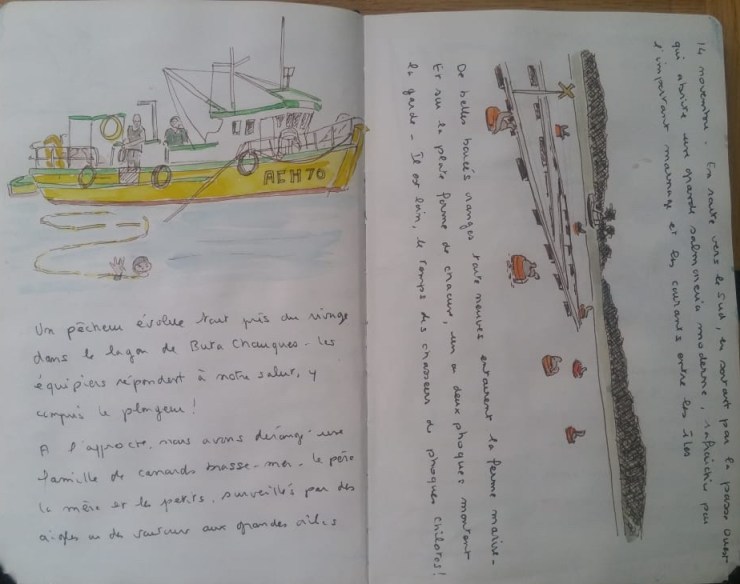 AEH70
Un pêcheur évolue tout près du rivage
dans le lagon de Buta Chauques - les
équipiers répondent à notre salut, y
compris le plongeur !
A l'approche, nous avons dérangé une
famille de canards brasse-mer - le père
la mère et les petits, surveillés par des
aigles ou des vautours aux grandes ailes
14 novembre. En route vers le Sud, en sortant par la passe Ouest
qui abrite une grande salmoneria moderne, rafraîchie par
l'important marnage et les courants entre les îles
De belles bouées oranges toute neuves entourent la ferme marine -
Et sur la plate forme de chacune, un ou deux phoques montent
la garde - Il est loin, le temps des chasseurs de phoques chilotes !